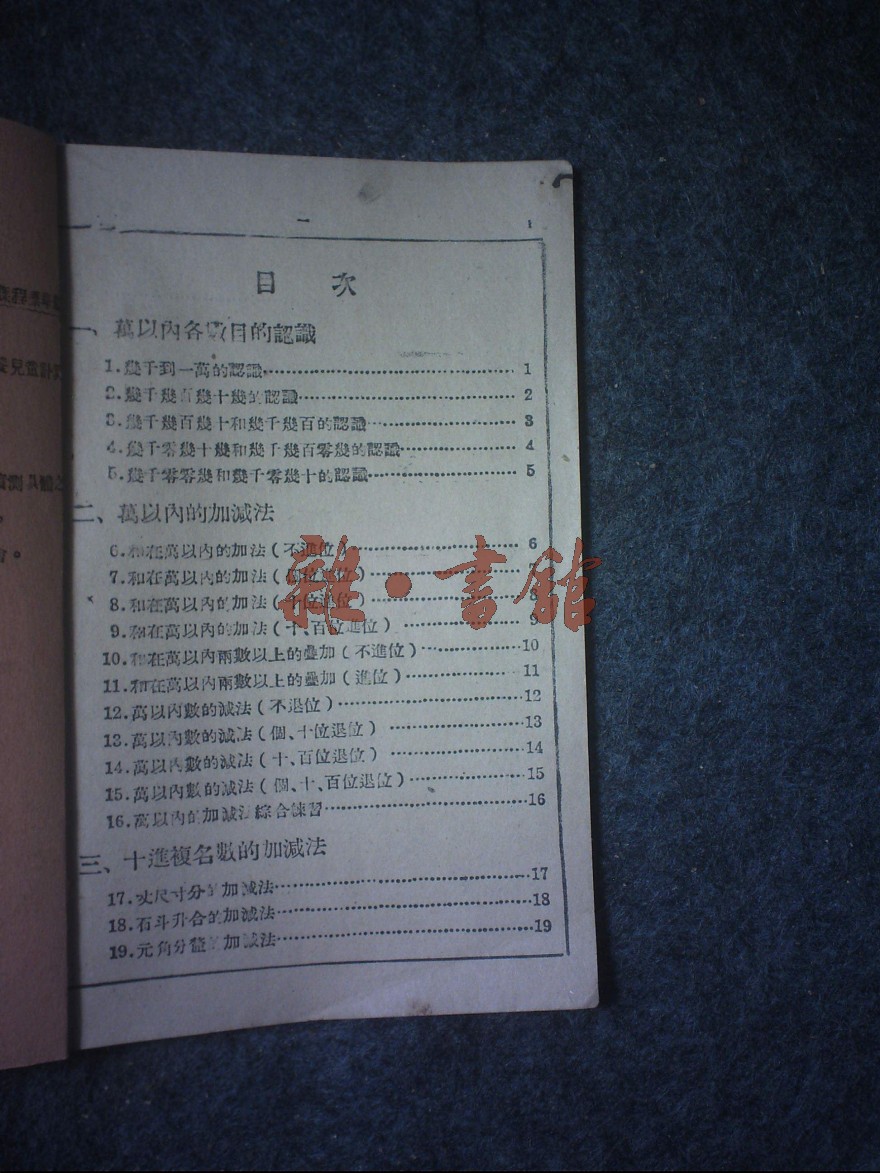 一 1
目 次
一、萬以內各數目的認識
1.幾千到一萬的認識 1
2.幾千幾百幾十幾的認識 2
3.幾千幾百幾十和幾千幾百的認識 3
4.幾千零幾十幾和幾千幾百零幾的認識 4
5.幾千零零幾和幾千零幾十的認識 5
二、萬以內的加減法
6.和在萬以內的加法(不進位) 6
7.和在萬以內的加法(個位進位) 7
8.和在萬以內的加法(十位進位) 8
9.和在萬以內的加法(十、百位進位) 9
10.和在萬以內兩數以上的疊加(不進位) 10
11.和在萬以內兩數以上的疊加(進位) 11
12.萬以內數的減法(不退位) 12
13.萬以內數的減法(個、十位退位) 13
14.萬以內數的減法(十、百位退位) 14
15.萬以內數的減法(個、十、百位退位) 15
16.萬以內的加減法綜合練習 16
三、十進複名數的加減法
17.丈尺寸分的加減法 17
18.石斗升合的加減法 18
19.元角分釐的加減法 19
雜·書館